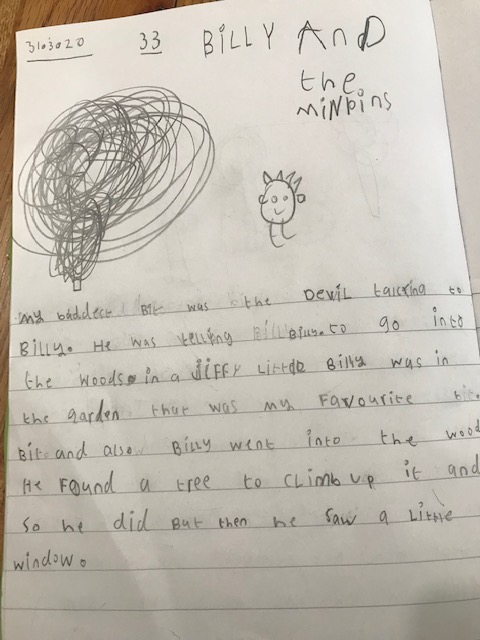 31.3.020 33 BiLLY AnD
the
MiNpins
my baddest Bit was the DevIL talking to
BiLLy. He was telling Billy. to go into
the woods. in a JiFFY LittDe Billy was in
the garden that was my Favourite bit.
Bit and also Billy went into the wood
He Found a tree to CLimb up it and
So he did But then he Saw a Little
window.